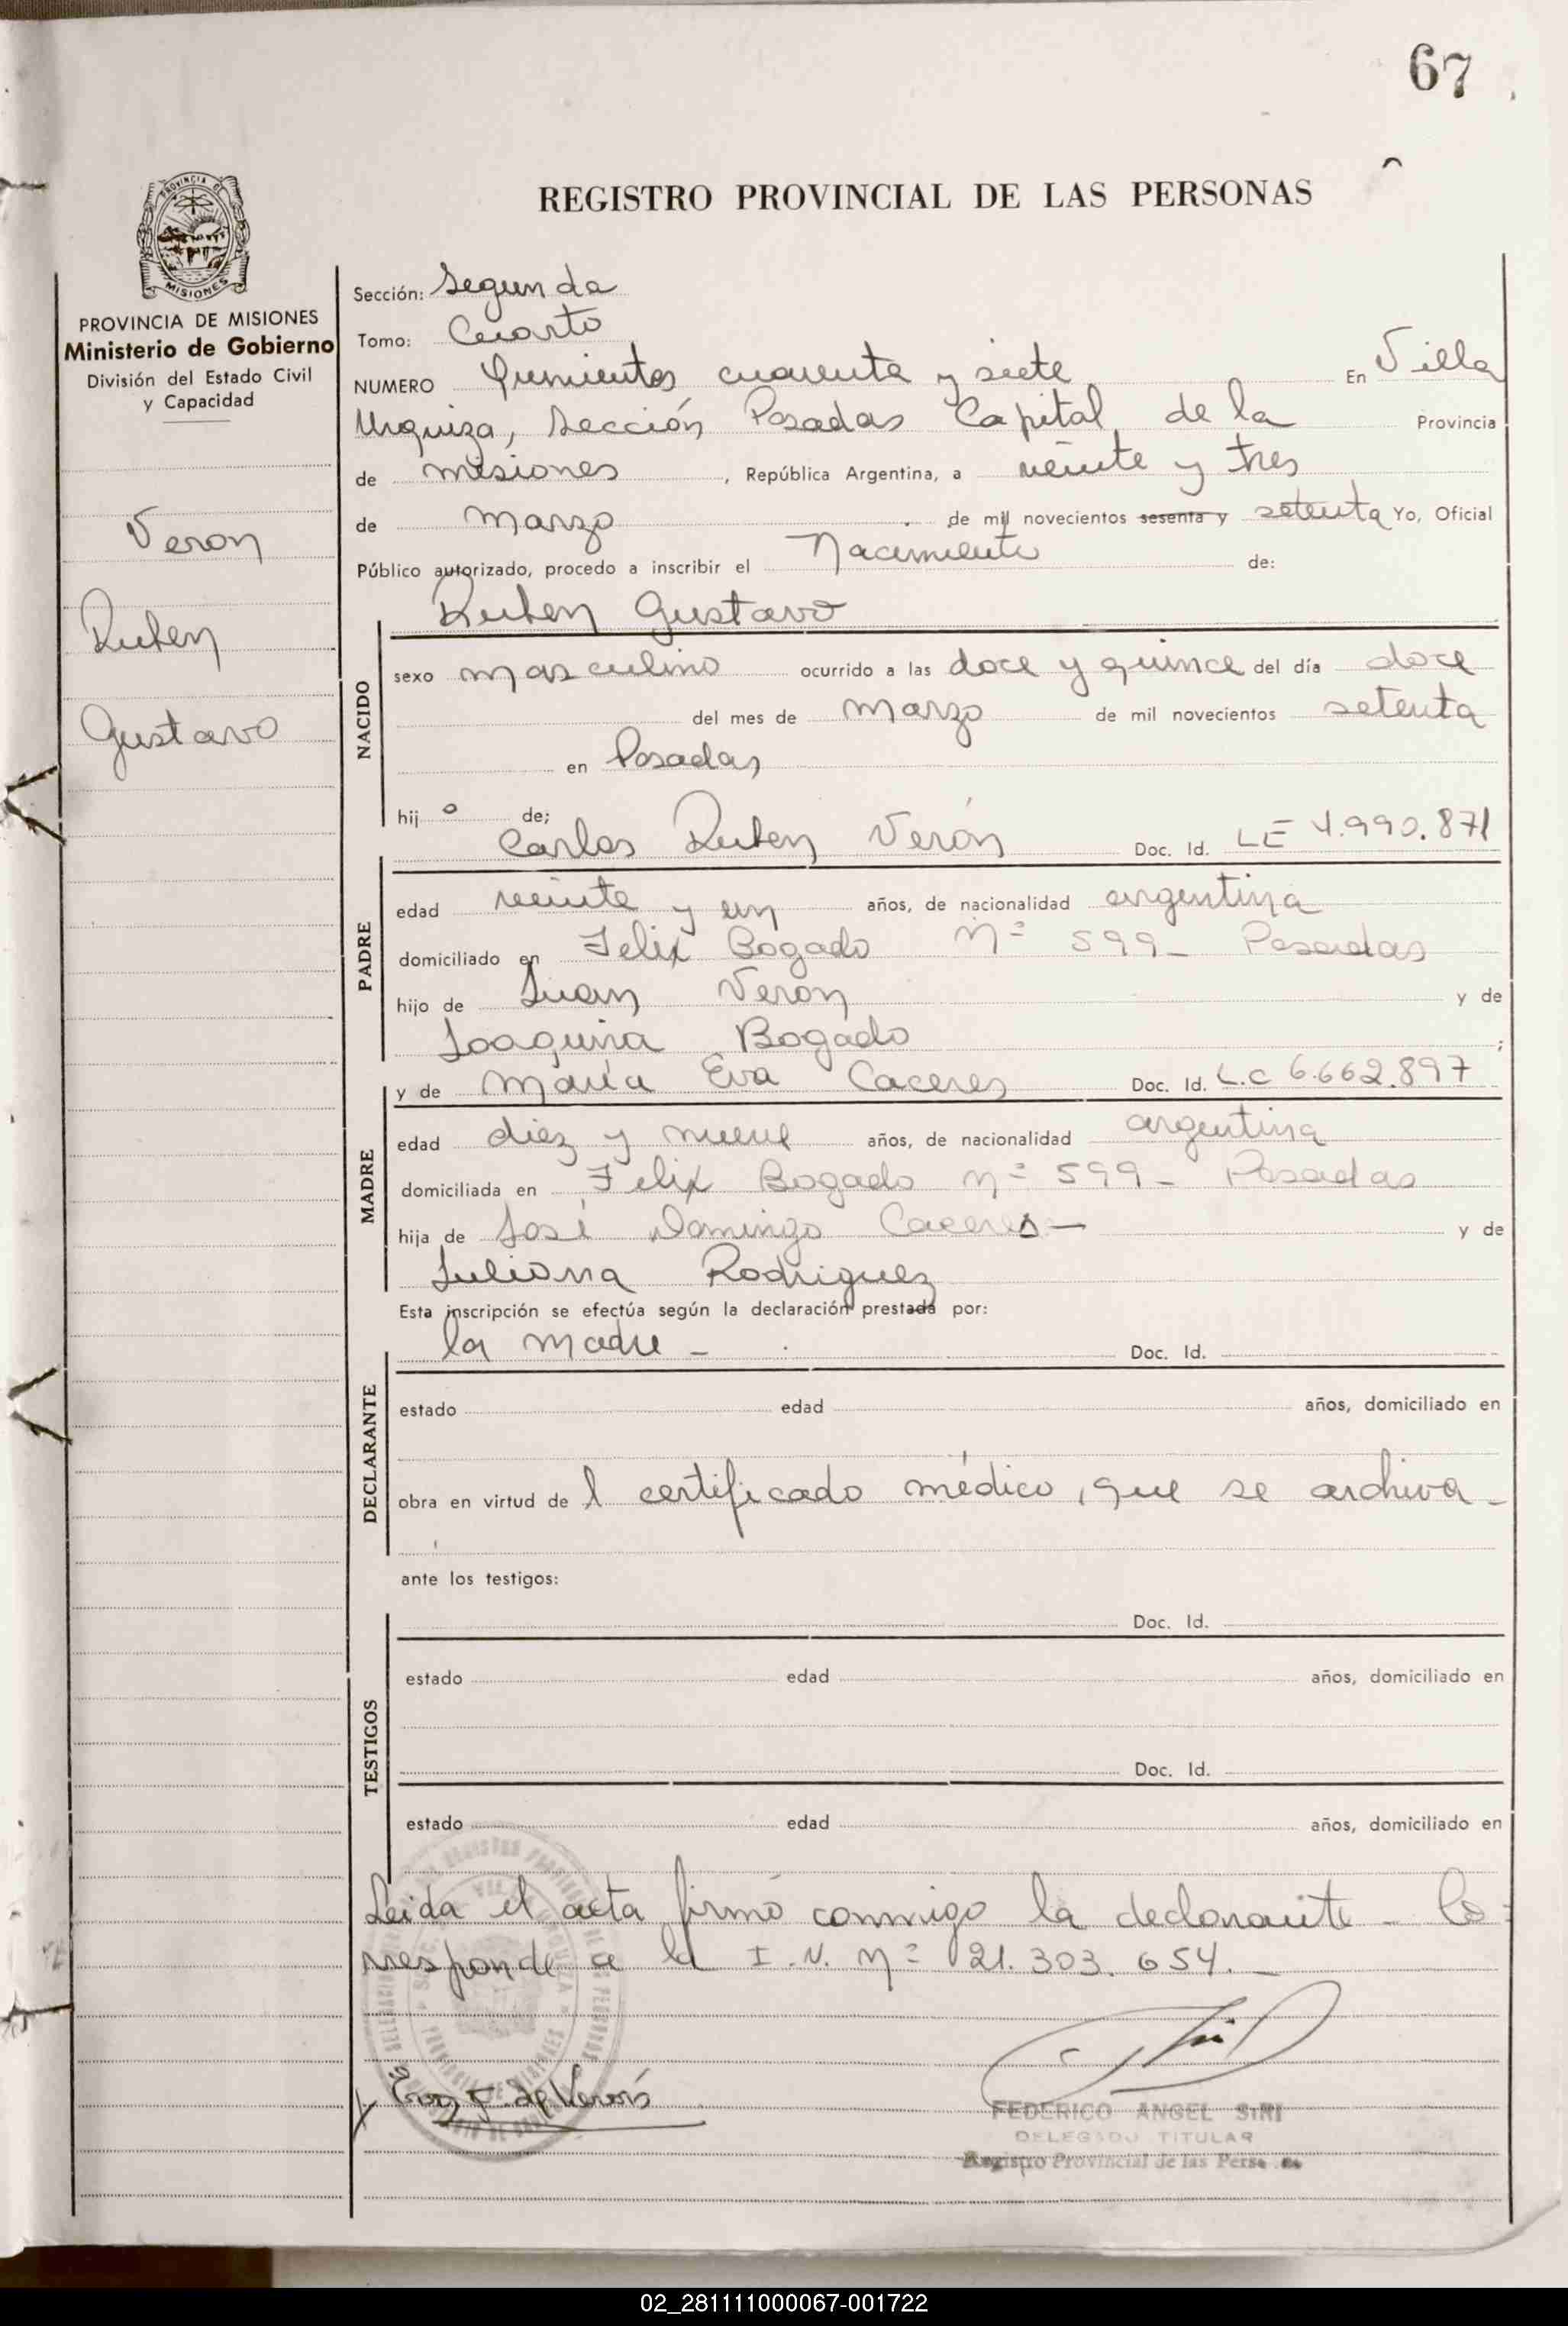 67
REGISTRO PROVINCIAL DE LAS PERSONAS
PROVINCIA DE MISIONES
Ministerio de Gobierno
División del Estado Civil
y Capacidad
Veron
Ruben
Gustavo
Sección: Segunda
Tomo: Cuarto
NUMERO Quinientos cuarenta y siete En Villa
Urquiza, Sección Posadas Capital de la Provincia
de misiones, República Argentina, a veinte y tres
de marzo de mil novecientos sesenta y setenta Yo, Oficial
Público autorizado, procedo a inscribir el Nacimiento de:
Ruben Gustavo
NACIDO
sexo masculino ocurrido a las doce y quince del día doce
del mes de marzo de mil novecientos setenta
en Posadas
hij o de;
Carlos Ruben Verón Doc. Id. LE 4.990.871
PADRE
edad veinte y un años, de nacionalidad argentina
domiciliado en Felix Bogado Nº 599- Posadas
hijo de Juan Veron y de
Joaquina Bogado ;
y de María Eva Caceres Doc. Id. L.C 6.662.897
MADRE
edad diez y nueve años, de nacionalidad argentina
domiciliada en Felix Bogado nº 599- Posadas
hija de José Domingo Caceres- y de
Juliana Rodriguez
Esta inscripción se efectúa según la declaración prestada por:
la madre - Doc. Id.
DECLARANTE
estado edad años, domiciliado en
obra en virtud de l certificado médico, que se archiva-
ante los testigos:
Doc. Id.
TESTIGOS
estado edad años, domiciliado en
Doc. Id.
estado edad años, domiciliado en
Leida el acta firmó conmigo la declarante - Co-
rresponde a la I.N. Nº 21.303.654.-
FEDERICO ANGEL SIRI
DELEGADO TITULAR
Registro Provincial de las Personas
02_281111000067-001722